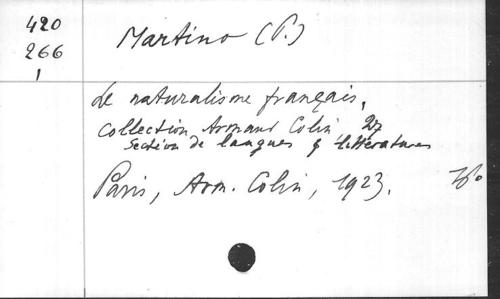 420
266
1
Martino (P.)
Le naturalisme français,
Collection Armand Colin 27
Section de langues & littératures
Paris, Arm. Colin, 1923.